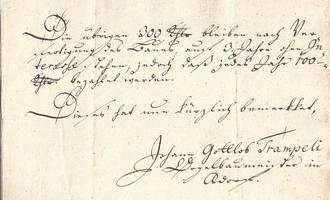 Die übrigen 300 Thlr bleiben nach Ver-
fertigung des Baues, auf 3. Jahre ohne In-
teresse stehen, jedoch daß jedes Jahr 100.-
Thlr. bezahlet werden.
Dieses hat nun kürzlich bemerket,
Johann Gottlob Trampeli
Orgelbaumeister in
Adorf.